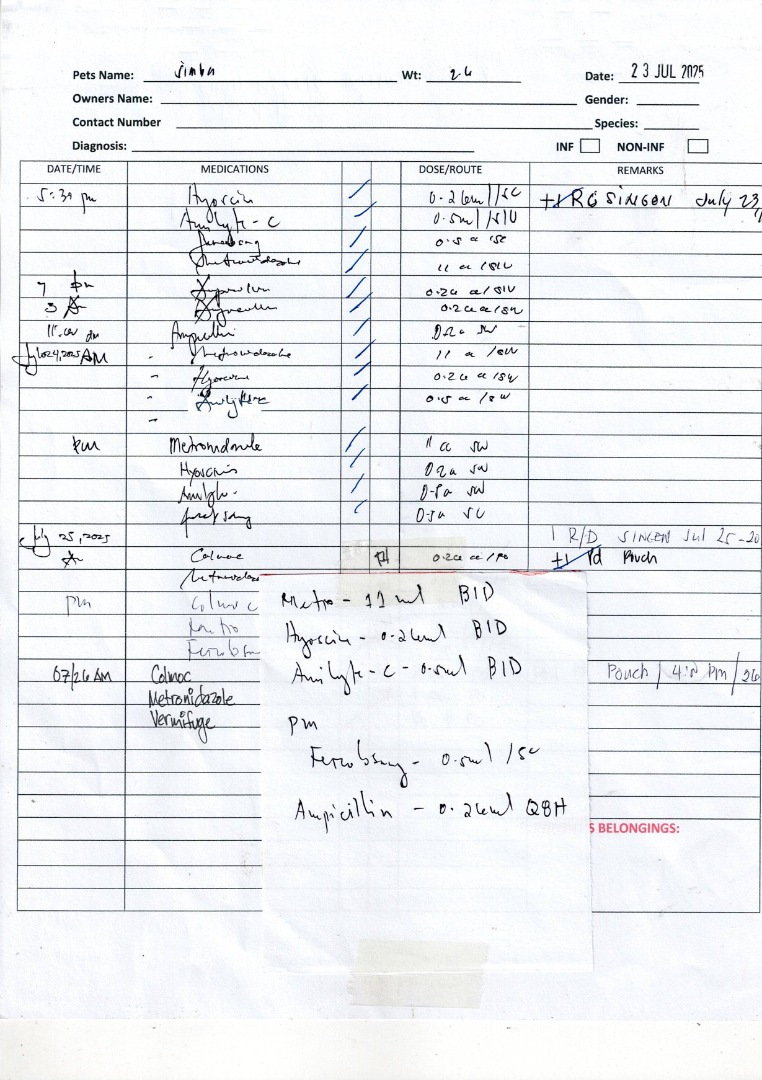 Pets Name: Simba Wt: 2.6 Date: 23 JUL 2025
Owners Name: Gender:
Contact Number Species:
Diagnosis: INF NON-INF
DATE/TIME MEDICATIONS DOSE/ROUTE REMARKS
5:30 pm Hyoscin 0.26ml/SC +1 RC SINGEN July 23
Amilyte-C 0.5ml/SIV
0.5 cc /SC
Metronidazole 11 cc /SIV
7 pm 0.26 cc/SIV
3 A 0.26 cc/SIV
11:00 pm Ampicillin 0.26 SIV
July 24, 2025 AM - Metronidazole 11 cc /SIV
- Hyoscine 0.26 cc /SIV
- Amilyte 0.5 cc /SIV
-
pm Metronidazole 11 cc SIV
Hyoscin 0.26 SIV
Amilyte- 0.5 SIV
0.5 SC
July 25, 2025 1 R/D SINGEN Jul 25-20
A Colmoc 0.26 cc/PO +1 Rd Pouch
Metronidazo
pm Colmoc
Metro
Ferrobsan
07/26 AM Colmoc Pouch | 4: PM/26
Metronidazole
Vermifuge
Metro - 11 ml BID
Hyoscin - 0.26ml BID
Amilyte-C - 0.5ml BID
pm
Ferrobsang - 0.5ml /SC
Ampicillin - 0.26ml Q8H
S BELONGINGS: